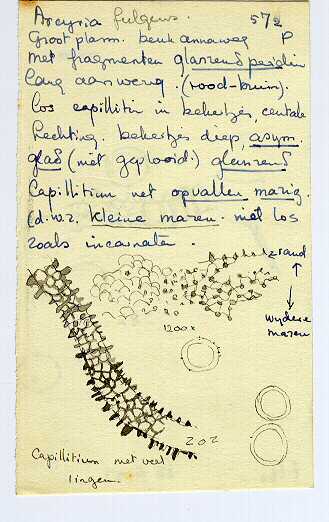 Arcyria fulgens. 572
Groot plasm. beuk annaweg P
met fragmenten glanzend peridin
lang aanwezig. (rood-bruin).
los capillitiu in bekertjes, centrale
hechting. bekertjes diep, asym.
glad (niet geplooid.) glanzend
Capillitium net opvallen mazig.
(d.w.z. kleine mazen. niet los
zoals incarnata.
rand
wydere
mazen
1200x
202
Capillitium met veel
ringen.